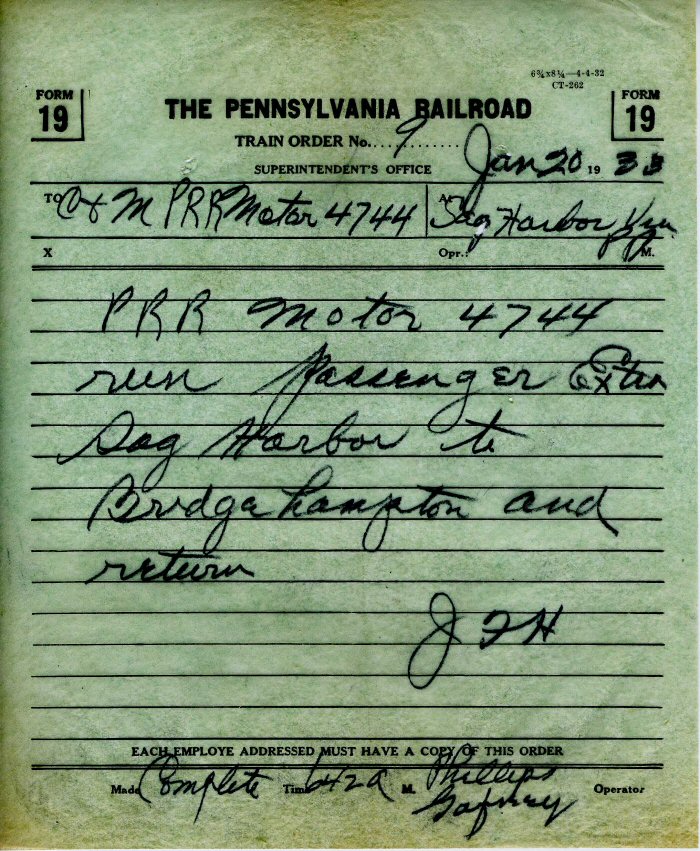 6¾x8¼—4-4-32
CT-262
FORM 19
FORM 19
THE PENNSYLVANIA RAILROAD
TRAIN ORDER No. 9
SUPERINTENDENT'S OFFICE Jan 20 19 33
TO C & M PRR Motor 4744 At Sag Harbor
X Opr.: M.
PRR Motor 4744
run Passenger Extra
Sag Harbor to
Bridgehampton and
return
J F H
EACH EMPLOYE ADDRESSED MUST HAVE A COPY OF THIS ORDER
Made Complete Time 642 a M. Phillips Operator
Gafney